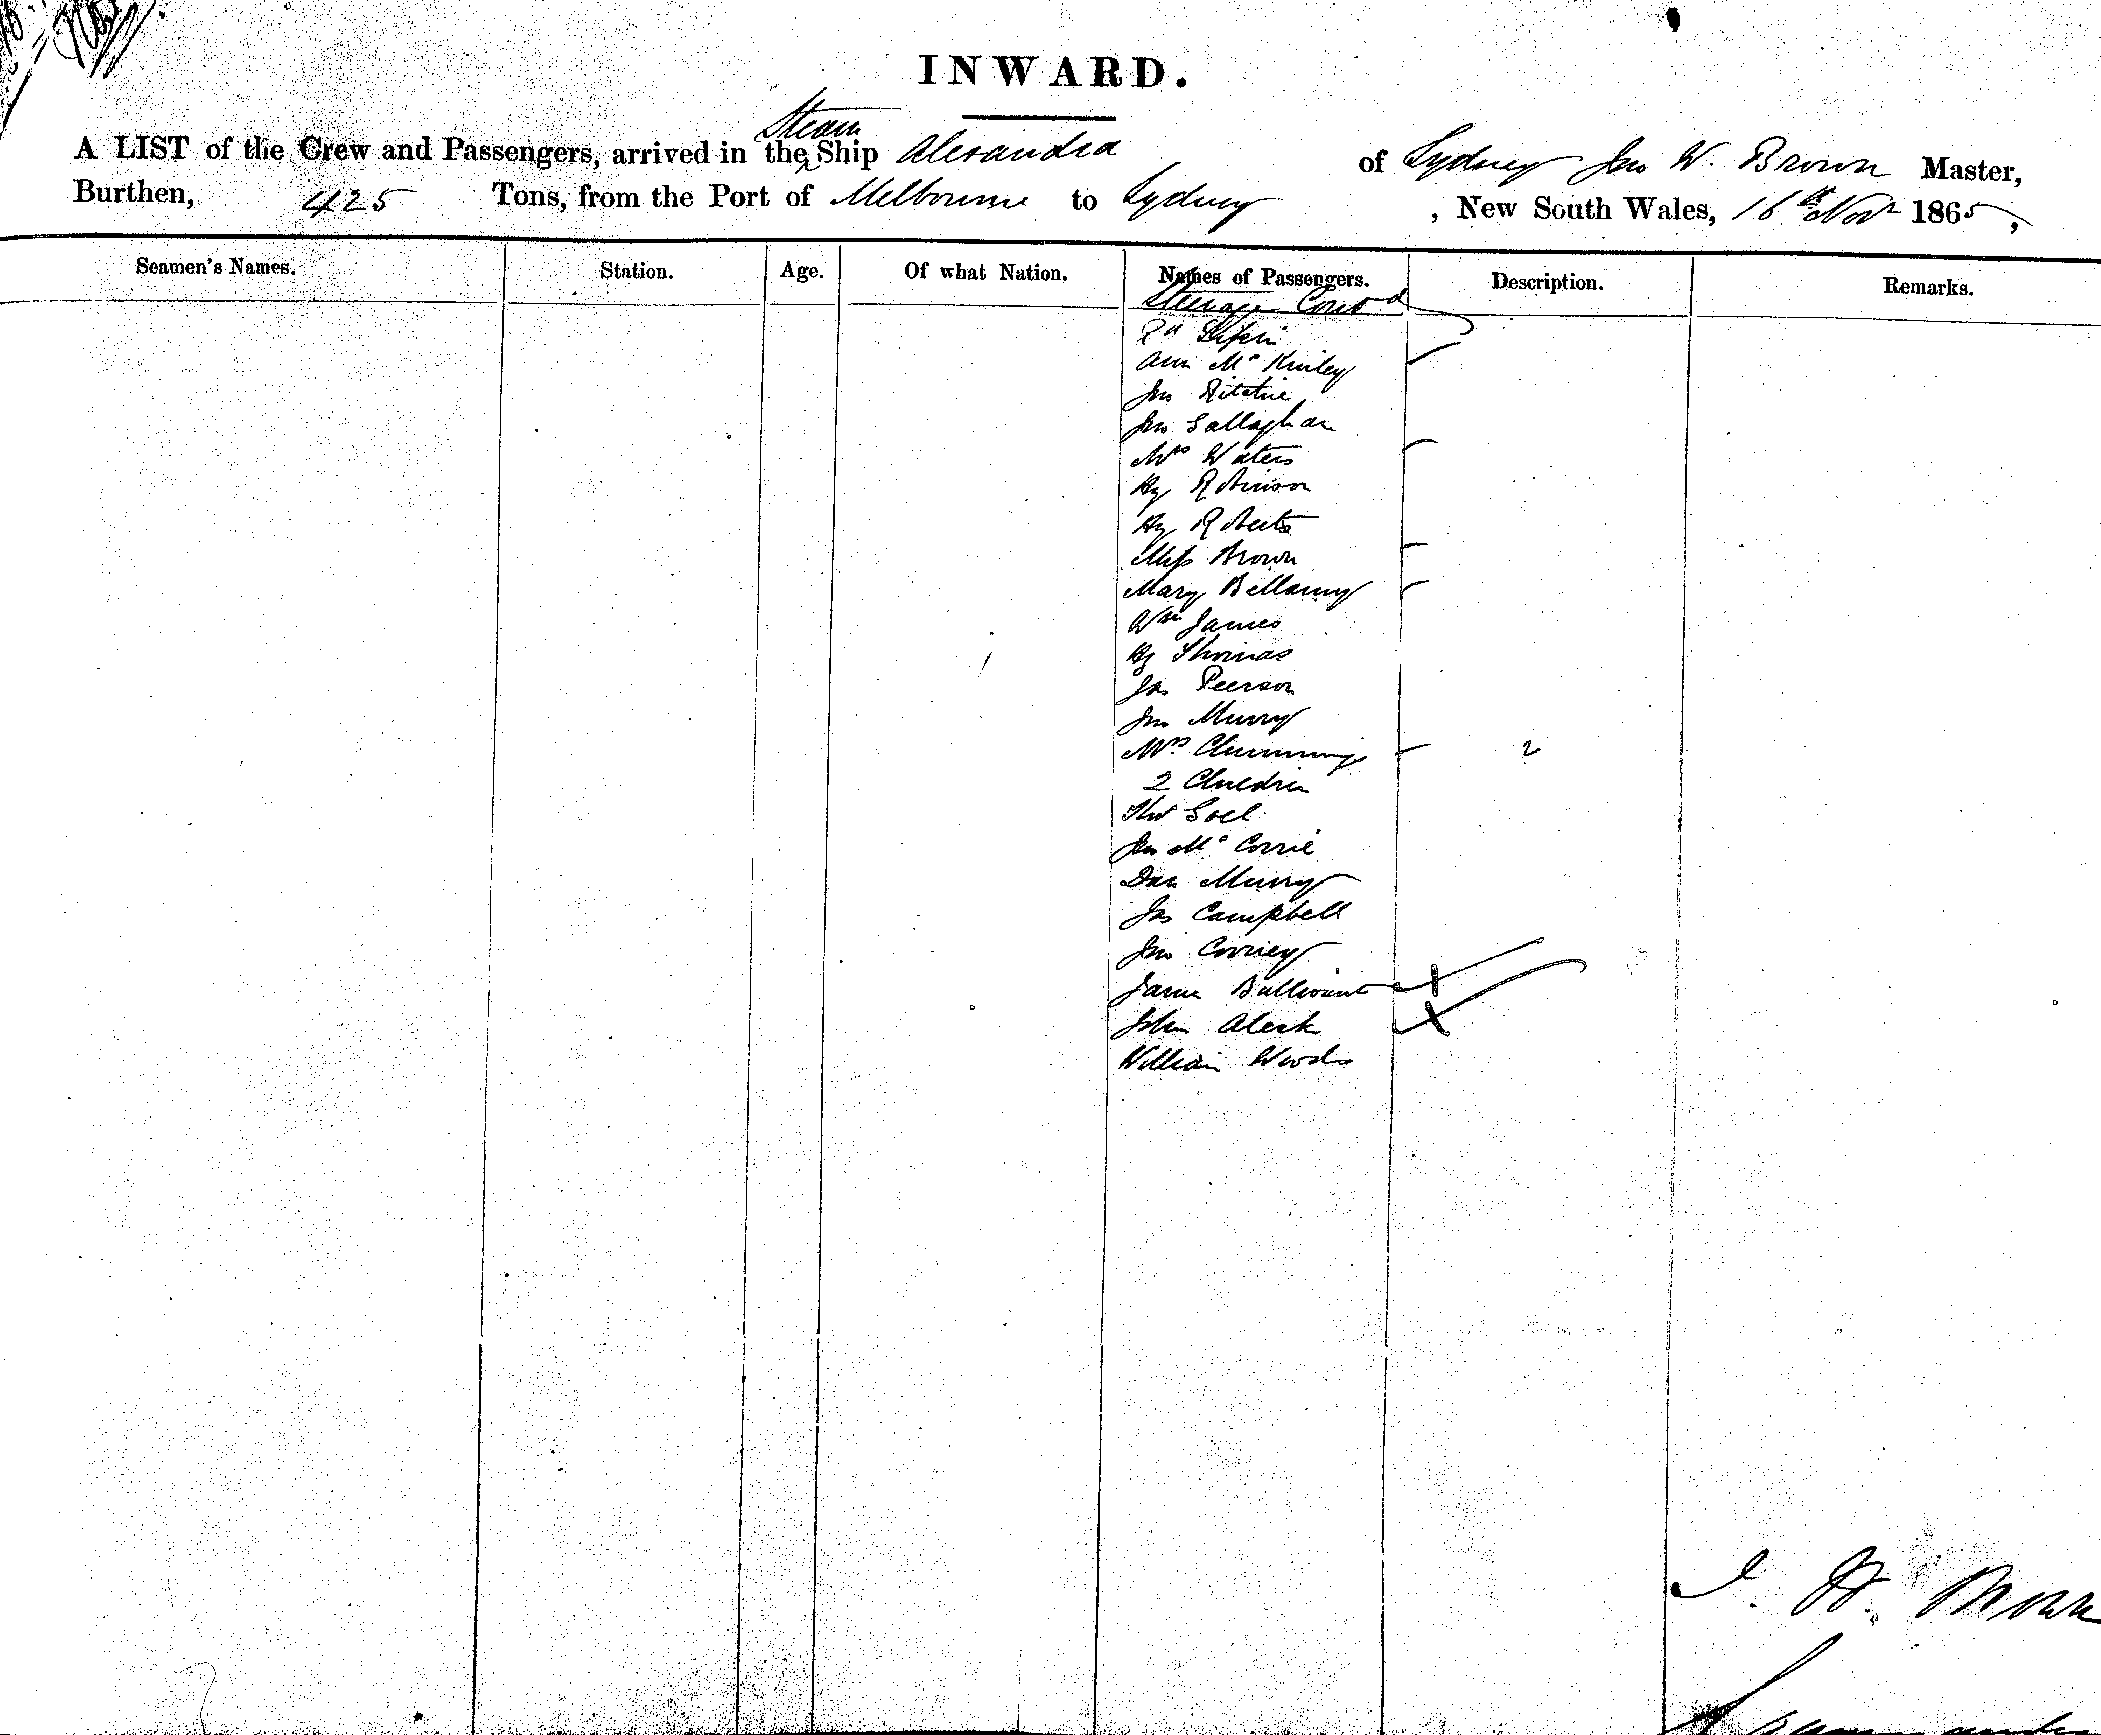 INWARD.
A LIST of the Crew and Passengers, arrived in the Steam Ship Alexandra of Sydney Jno W. Brown Master,
Burthen, 425 Tons, from the Port of Melbourne to Sydney, New South Wales, 16th Novr 1865,
Seamen's Names. Station. Age. Of what Nation. Names of Passengers. Description. Remarks.
Steerage Contd
Ann Mc Kinley
Jno Ritchie
Jno Gallaghan
Mrs Waters
Hy Robinson
Hy Roberts
Miss Brown
Mary Bellamy
Wm James
Hy Thomas
Jas Peerson
Jno Murry
Mrs Clumming 2
2 Children
Thos Goel
Jno Mc Corrie
Dan Murry
Jas Campbell
Jno Corriey
James Bullivant
John Aleck
William Woods
J. W. Brown